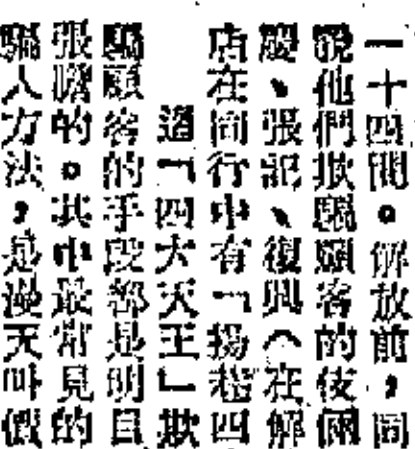 一十四間。解放前，同
說他們欺騙顧客的伎倆
慶、張記、復興（在解
店在同行中有「揚 四
這「四大天王」欺
騙顧客的手段都是明目
張瞻的。其中最常見的
騙人方法，是漫天叫價